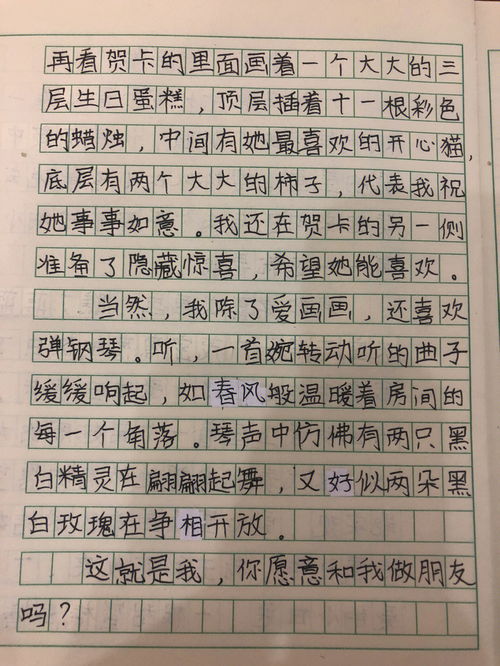 再看贺卡的里面画着一个大大的三
层生日蛋糕，顶层插着十一根彩色
的蜡烛，中间有她最喜欢的开心猫，
底层有两个大大的柿子，代表我祝
她事事如意。我还在贺卡的另一侧
准备了隐藏惊喜，希望她能喜欢。
当然，我除了爱画画，还喜欢
弹钢琴。听，一首婉转动听的曲子
缓缓响起，如春风般温暖着房间的
每一个角落。琴声中仿佛有两只黑
白精灵在翩翩起舞，又好似两朵黑
白玫瑰在争相开放。
这就是我，你愿意和我做朋友
吗？